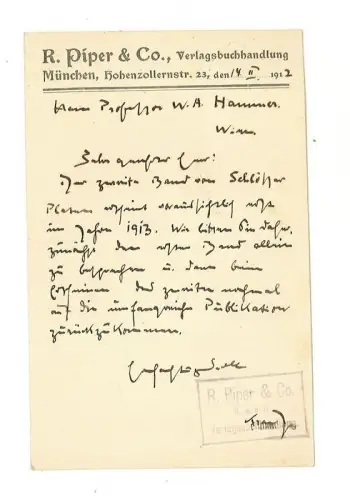 R. Piper & Co., Verlagsbuchhandlung
München, Hohenzollernstr. 23, den 14. II. 1912
Herrn Professor W. A. Hammer.
Wien.
Sehr geehrter Herr!
Der zweite Band von Schlösser
Platen erscheint voraussichtlich erst
im Jahre 1913. Wir bitten Sie daher,
zunächst den ersten Band allein
zu besprechen u. dann beim
Erscheinen des zweiten nochmal
auf die umfangreiche Publikation
zurückzukommen.
Hochachtungsvoll
R. Piper & Co.
Verlagsbuchhandlung